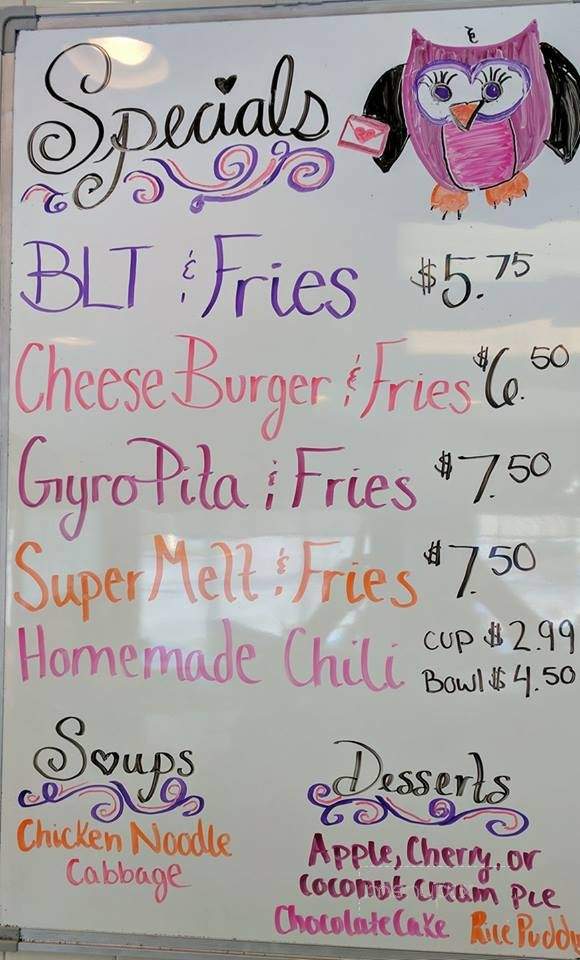 Specials
BLT & Fries $5.75
Cheese Burger & Fries $6.50
Gyro Pita & Fries $7.50
Super Melt & Fries $7.50
Homemade Chili cup $2.99
Bowl $4.50
Soups
Chicken Noodle
Cabbage
Desserts
Apple, Cherry, or
coconut cream pie
Chocolate Cake Rice Puddi